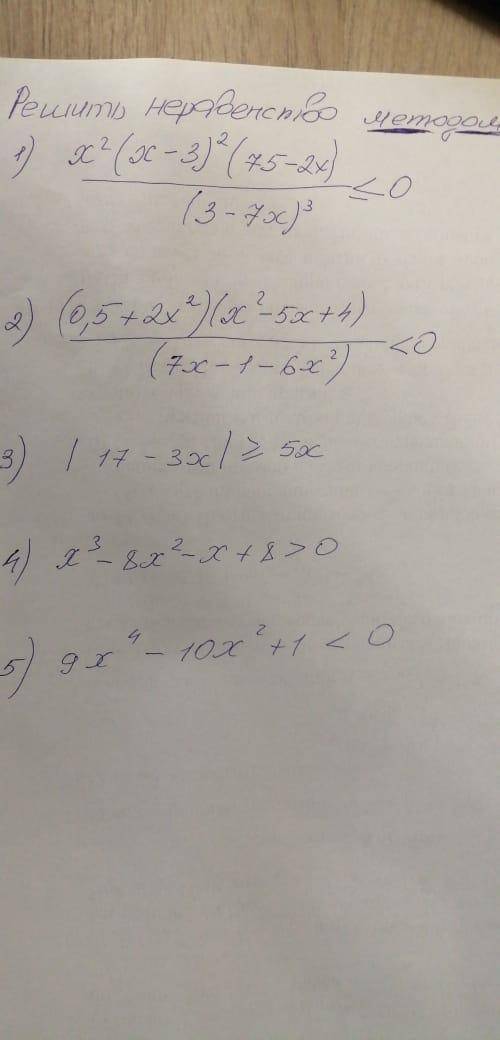 Решить неравенство методом
1) x²(x-3)²(75-2x) / (3-7x)³ ≤ 0
2) (0,5+2x²)(x²-5x+4) / (7x-1-6x²) < 0
3) | 17 - 3x | ≥ 5x
4) x³ - 8x² - x + 8 > 0
5) 9x⁴ - 10x² + 1 < 0